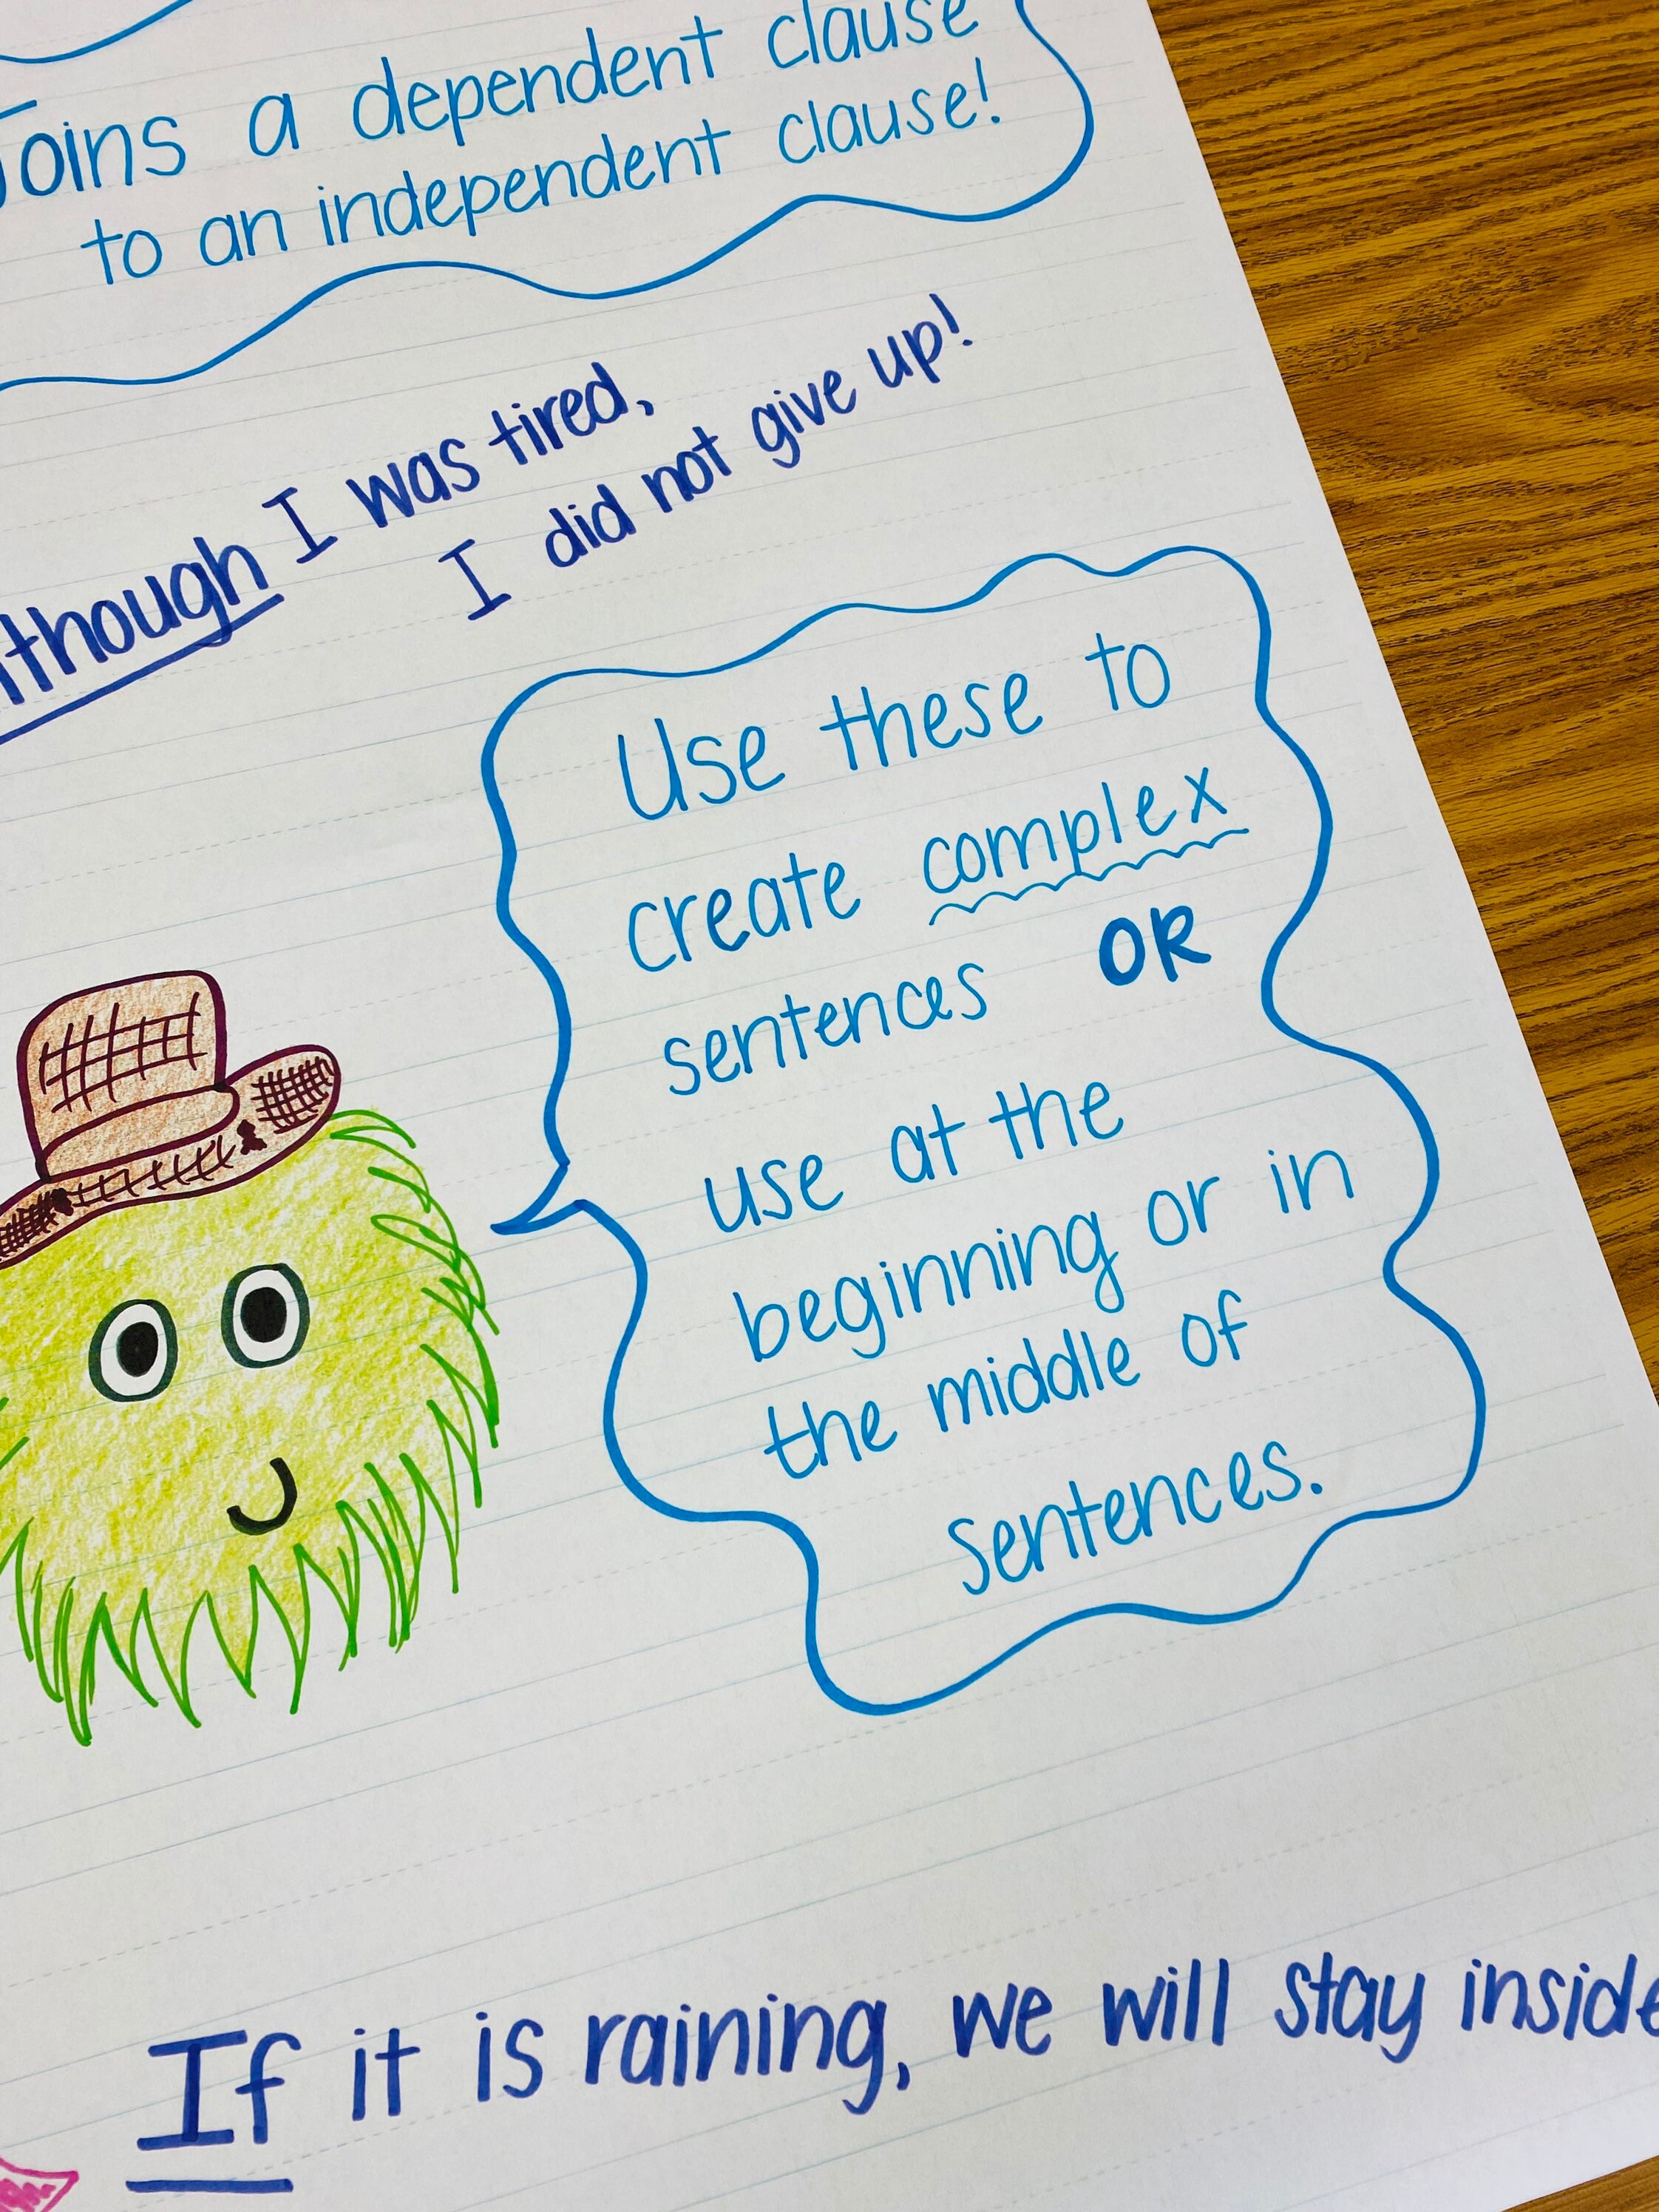 Joins a dependent clause
to an independent clause!
though I was tired,
I did not give up!
Use these to
create complex
sentences OR
use at the
beginning or in
the middle of
sentences.
If it is raining, we will stay inside